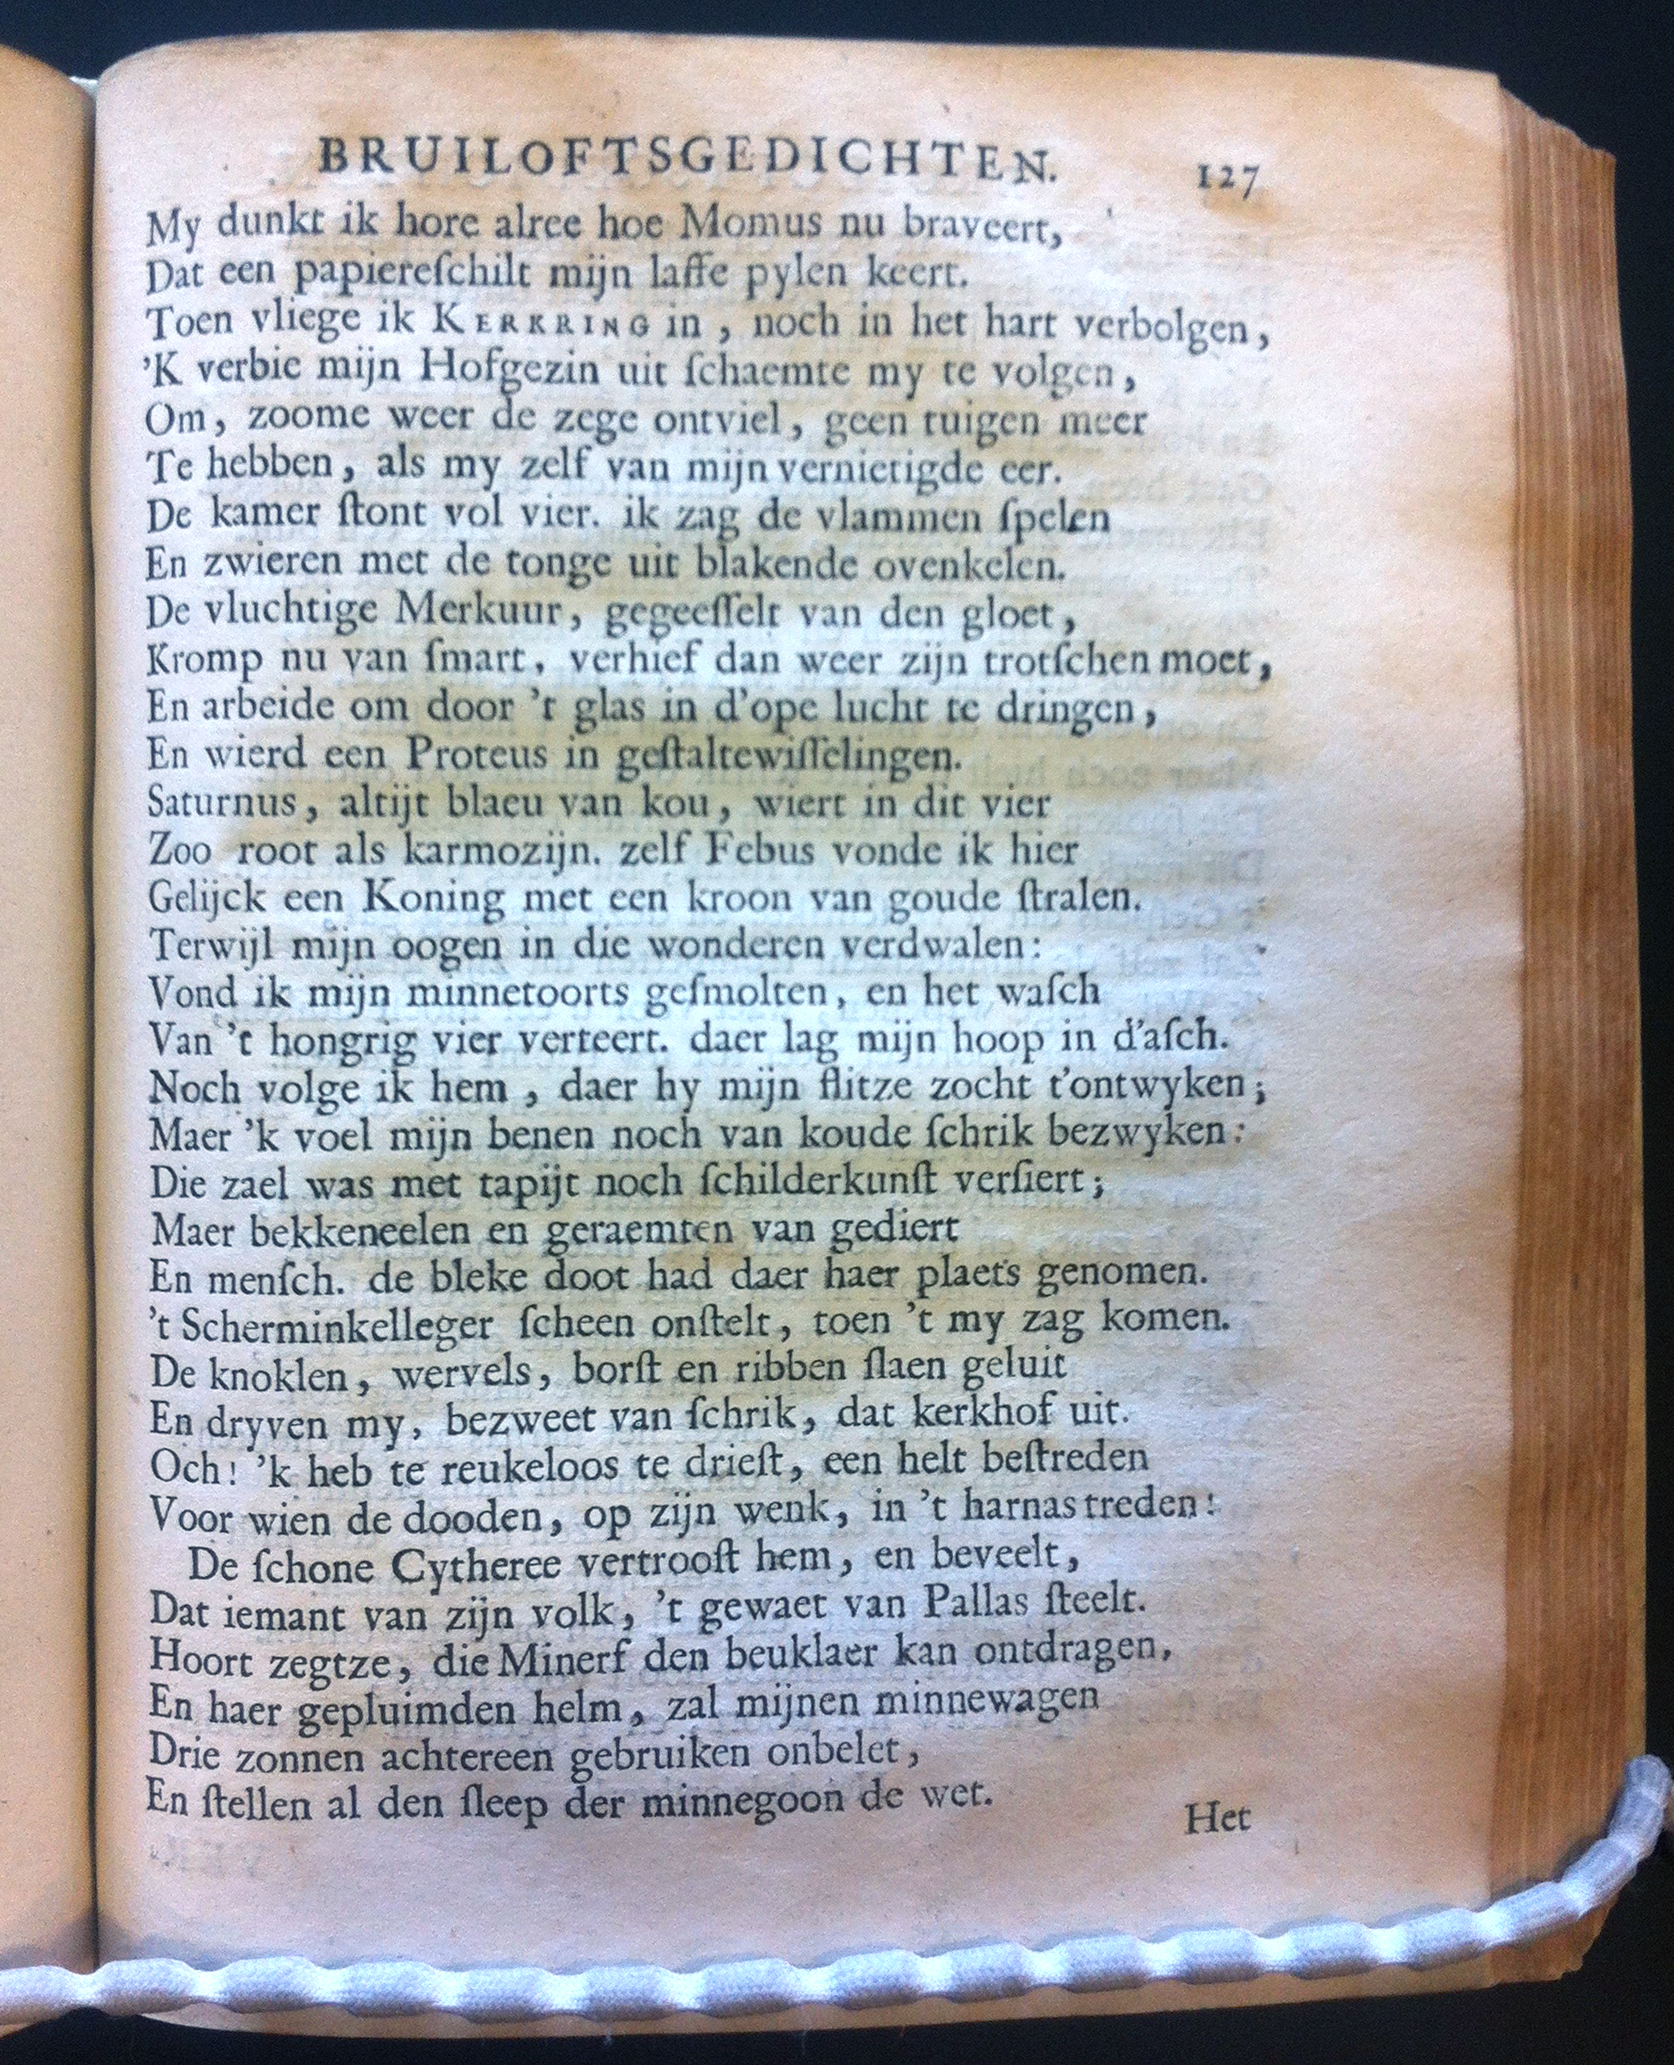 BRUILOFTSGEDICHTEN. 127
My dunkt ik hore alree hoe Momus nu braveert,
Dat een papiereſchilt mijn laffe pylen keert.
Toen vliege ik KERKRING in, noch in het hart verbolgen,
'K verbie mijn Hofgezin uit ſchaemte my te volgen,
Om, zoome weer de zege ontviel, geen tuigen meer
Te hebben, als my zelf van mijn vernietigde eer.
De kamer ſtont vol vier. ik zag de vlammen ſpelen
En zwieren met de tonge uit blakende ovenkelen.
De vluchtige Merkuur, gegeeſſelt van den gloet,
Kromp nu van ſmart, verhief dan weer zijn trotſchen moet,
En arbeide om door 't glas in d'ope lucht te dringen,
En wierd een Proteus in geſtaltewiſſelingen.
Saturnus, altijt blaeu van kou, wiert in dit vier
Zoo root als karmozijn. zelf Febus vonde ik hier
Gelijck een Koning met een kroon van goude ſtralen.
Terwijl mijn oogen in die wonderen verdwalen:
Vond ik mijn minnetoorts geſmolten, en het waſch
Van 't hongrig vier verteert. daer lag mijn hoop in d'aſch.
Noch volge ik hem, daer hy mijn flitze zocht t'ontwyken;
Maer 'k voel mijn benen noch van koude ſchrik bezwyken:
Die zael was met tapijt noch ſchilderkunſt verſiert;
Maer bekkeneelen en geraemten van gediert
En menſch. de bleke doot had daer haer plaets genomen.
't Scherminkelleger ſcheen onſtelt, toen 't my zag komen.
De knoklen, wervels, borſt en ribben ſlaen geluit
En dryven my, bezweet van ſchrik, dat kerkhof uit.
Och! 'k heb te reukeloos te drieſt, een helt beſtreden
Voor wien de dooden, op zijn wenk, in 't harnas treden!
De ſchone Cytheree vertrooſt hem, en beveelt,
Dat iemant van zijn volk, 't gewaet van Pallas ſteelt.
Hoort zegtze, die Minerf den beuklaer kan ontdragen,
En haer gepluimden helm, zal mijnen minnewagen
Drie zonnen achtereen gebruiken onbelet,
En ſtellen al den ſleep der minnegoon de wet.
Het